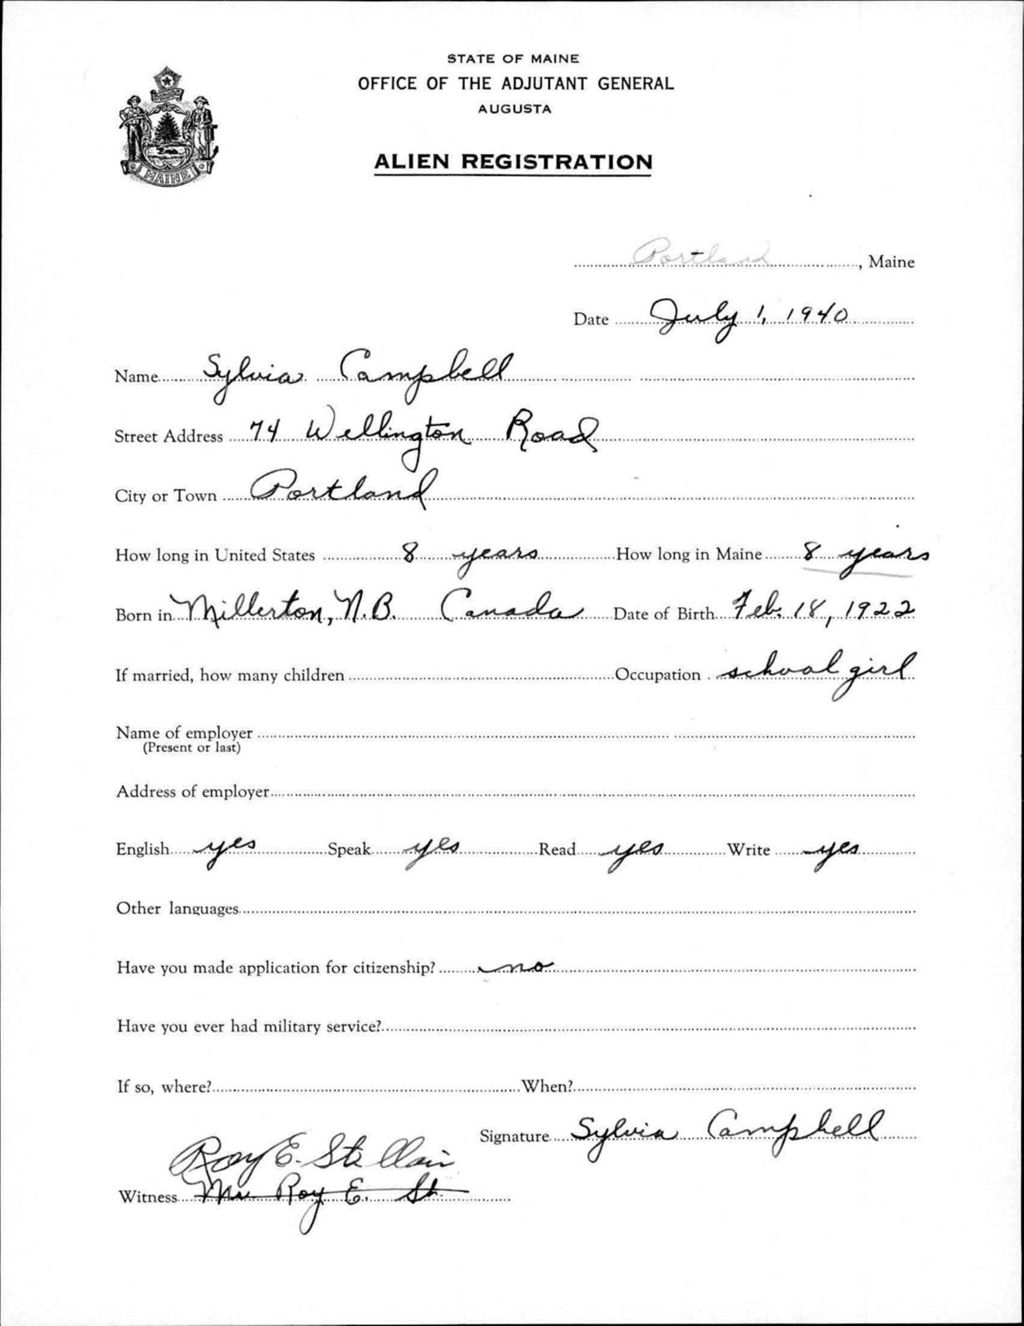 STATE OF MAINE
OFFICE OF THE ADJUTANT GENERAL
AUGUSTA
ALIEN REGISTRATION
MAINE
Portland, Maine
Date July 1, 1940
Name Sylvia Campbell
Street Address 74 Wellington Road
City or Town Portland
How long in United States 8 years How long in Maine 8 years
Born in Millerton, N.B. Canada Date of Birth Feb. 18, 1922
If married, how many children Occupation school girl
Name of employer
(Present or last)
Address of employer
English yes Speak yes Read yes Write yes
Other languages
Have you made application for citizenship? no
Have you ever had military service?
If so, where? When?
Signature Sylvia Campbell
Roy E. St.
Witness Mr Roy E. St.